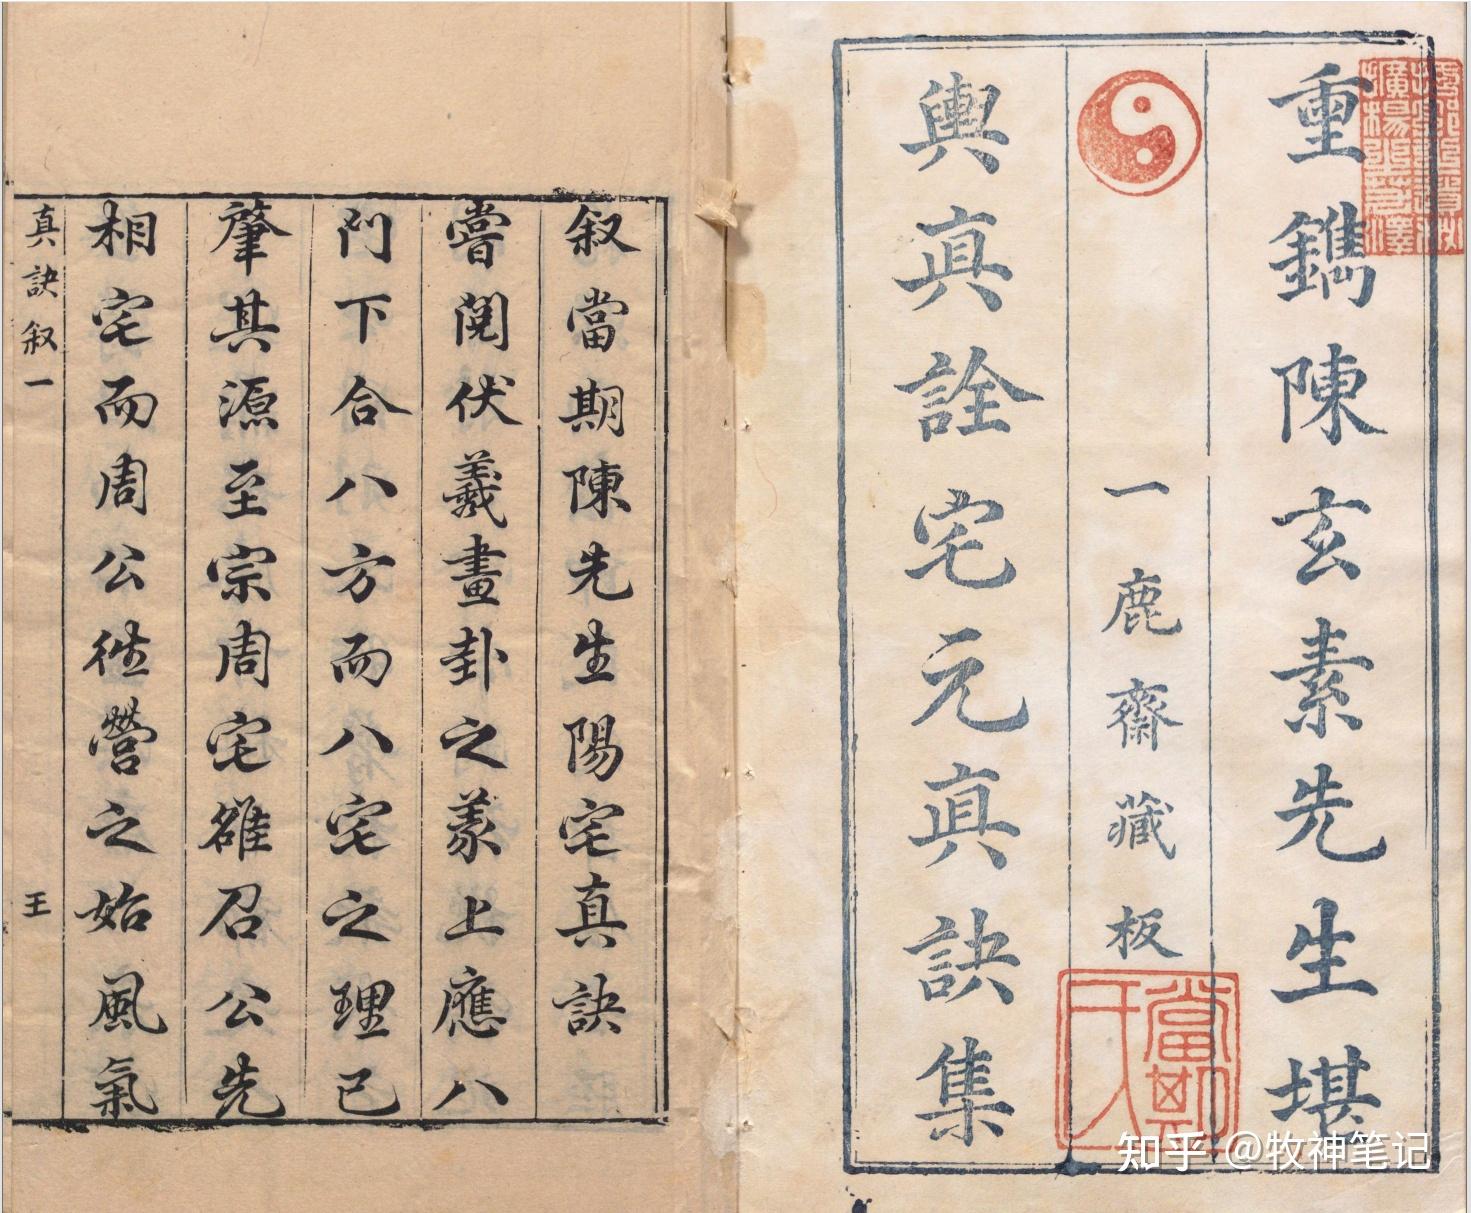 重鐫陳玄素先生堪
一鹿齋藏板
輿真詮宅元真訣集
叙當期陳先生陽宅真訣
嘗閱伏羲畫卦之羲上應八
門下合八方而八宅之理已
肇其源至宗周宅雒召公先
相宅而周公徃營之始風氣
真訣叙一
王
知乎 @牧神笔记